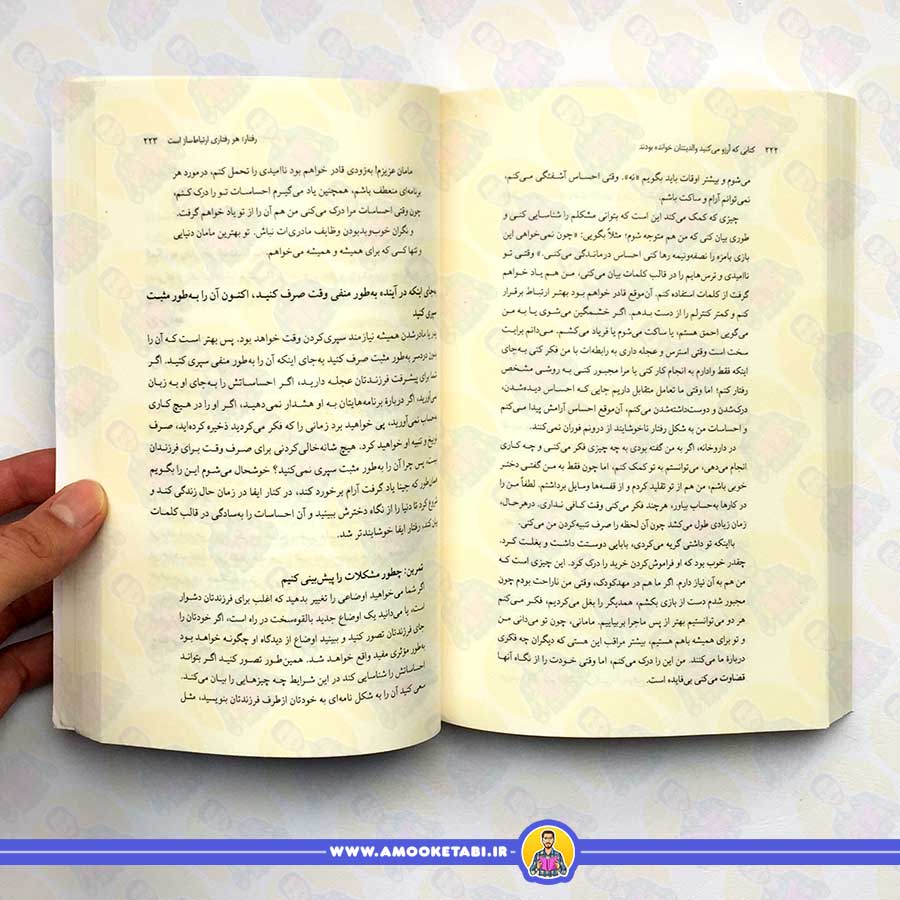 ۲۲۲ کتابی که آرزو می‌کنید والدینتان خوانده بودند
می‌شوم و بیشتر اوقات باید بگویم «نه». وقتی احساس آشفتگی می‌کنم،
نمی‌توانم آرام و ساکت باشم.
چیزی که کمک می‌کند این است که بتوانی مشکلم را شناسایی کنی و
طوری بیان کنی که من هم متوجه شوم؛ مثلاً بگویی: «چون نمی‌خواهی این
بازی بامزه را نصفه‌ونیمه رها کنی احساس درماندگی می‌کنی.» وقتی تو
ناامیدی و ترس‌هایم را در قالب کلمات بیان می‌کنی، من هم یاد خواهم
گرفت از کلمات استفاده کنم. آن‌موقع قادر خواهم بود بهتر ارتباط برقرار
کنم و کمتر کنترلم را از دست بدهم. اگر خشمگین می‌شوی یا به من
می‌گویی احمق هستم، یا ساکت می‌شوم یا فریاد می‌کشم. می‌دانم برایت
سخت است وقتی استرس و عجله داری به رابطه‌ات با من فکر کنی به‌جای
اینکه فقط وادارم به انجام کار کنی یا مرا مجبور کنی به روشی مشخص
رفتار کنم؛ اما وقتی ما تعامل متقابل داریم جایی که احساس دیده‌شدن،
درک‌شدن و دوست‌داشته‌شدن می‌کنم، آن‌موقع احساس آرامش پیدا می‌کنم
و احساسات من به شکل رفتار ناخوشایند از درونم فوران نمی‌کنند.
در داروخانه، اگر به من گفته بودی به چه چیزی فکر می‌کنی و چه کاری
انجام می‌دهی، می‌توانستم به تو کمک کنم، اما چون فقط به من گفتی دختر
خوبی باشم، من هم از تو تقلید کردم و از قفسه‌ها وسایل برداشتم. لطفاً من را
در کارها به‌حساب بیاور، هرچند فکر می‌کنی وقت کافی نداری، درهرحال،
زمان زیادی طول می‌کشد چون آن لحظه را صرف تنبیه‌کردن من می‌کنی.
بااینکه تو داشتی گریه می‌کردی، بابایی دوستت داشت و بغلت کرد.
چقدر خوب بود که او فراموش‌کردن خرید را درک کرد. این چیزی است که
من هم به آن نیاز دارم. اگر ما هم در مهدکودک، وقتی من ناراحت بودم چون
مجبور شدم دست از بازی بکشم، همدیگر را بغل می‌کردیم، فکر می‌کنم
هر دو می‌توانستیم بهتر از پس ماجرا بربیاییم. مامانی، چون تو می‌دانی من
و تو برای همیشه باهم هستیم، بیشتر مراقب این هستی که دیگران چه فکری
دربارهٔ ما می‌کنند. من این را درک می‌کنم، اما وقتی خودت را از نگاه آنها
قضاوت می‌کنی بی‌فایده است.
رفتار؛ هر رفتاری ارتباط‌ساز است ۲۲۳
مامان عزیزم! به‌زودی قادر خواهم بود ناامیدی را تحمل کنم، درمورد هر
برنامه‌ای منعطف باشم، همچنین یاد می‌گیرم احساسات تو را درک کنم،
چون وقتی احساسات مرا درک می‌کنی من هم آن را از تو یاد خواهم گرفت.
و نگران خوب‌ویدبودن وظایف مادری‌ات نباش. تو بهترین مامان دنیایی
و تنها کسی که برای همیشه و همیشه می‌خواهم.
به‌جای اینکه در آینده به‌طور منفی وقت صرف کنید، اکنون آن را به‌طور مثبت
سپری کنید
پدر یا مادرشدن همیشه نیازمند سپری‌کردن وقت خواهد بود. پس بهتر است که آن را
بدون دردسر به‌طور مثبت صرف کنید به‌جای اینکه آن را به‌طور منفی سپری کنید. اگر
شما برای پیشرفت فرزندتان عجله دارید، اگر احساساتش را به‌جای او به زبان
می‌آورید، اگر دربارهٔ برنامه‌هایتان به او هشدار نمی‌دهید، اگر او را در هیچ کاری
به‌حساب نمی‌آورید، پی خواهید برد زمانی را که فکر می‌کردید ذخیره کرده‌اید، صرف
توبیخ و تنبیه او خواهید کرد. هیچ شانه‌خالی‌کردنی برای صرف وقت برای فرزندان
نیست، پس چرا آن را به‌طور مثبت سپری نمی‌کنید؟ خوشحال می‌شوم این را بگویم
همان‌طور که جینا یاد گرفت آرام برخورد کند، در کنار ایفا در زمان حال زندگی کند و
شروع کرد تا دنیا را از نگاه دخترش ببیند و آن احساسات را به‌سادگی در قالب کلمات
بیان کند، رفتار ایفا خوشایندتر شد.
تمرین: چطور مشکلات را پیش‌بینی کنیم
اگر شما می‌خواهید اوضاعی را تغییر بدهید که اغلب برای فرزندتان دشوار
است، یا می‌دانید یک اوضاع جدید بالقوه‌سخت در راه است، اگر خودتان را
جای فرزندتان تصور کنید و ببینید اوضاع از دیدگاه او چگونه خواهد بود
به‌طور مؤثری مفید واقع خواهد شد. همین‌طور تصور کنید اگر بتواند
احساساتش را شناسایی کند در این شرایط چه چیزهایی را بیان می‌کند.
سعی کنید آن را به شکل نامه‌ای به خودتان ازطرف فرزندتان بنویسید، مثل
WWW.AMOOKETABI.IR